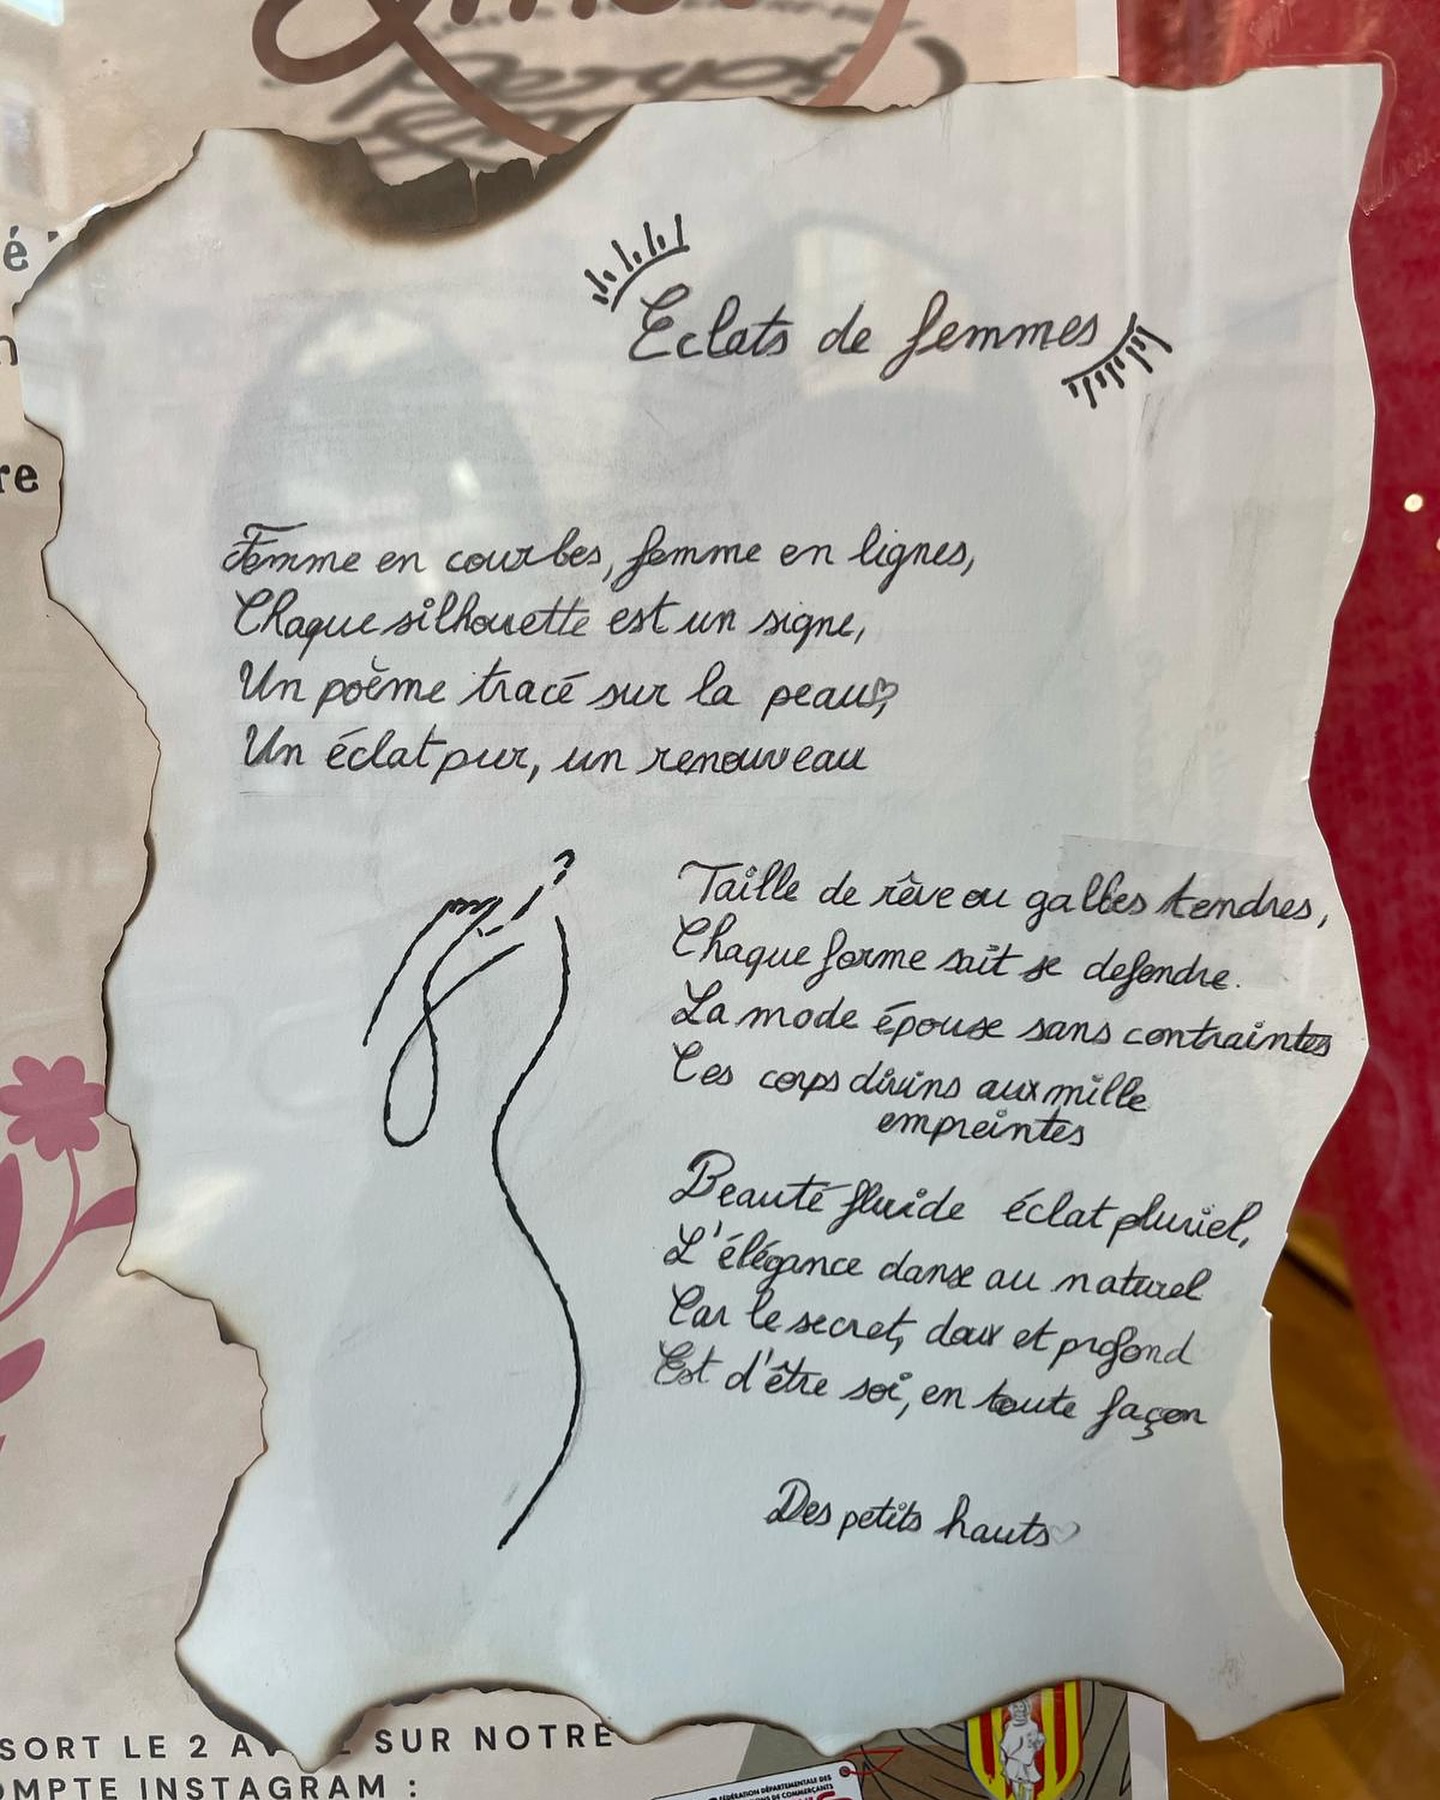 é
n
re
Eclats de femmes
Femme en courbes, femme en lignes,
Chaque silhouette est un signe,
Un poème tracé sur la peau,
Un éclat pur, un renouveau
Taille de rêve ou galbes tendres,
Chaque forme sait se defendre.
La mode épouse sans contraintes
Ces corps divins aux mille
empreintes
Beauté fluide éclat pluriel,
L'élégance danse au naturel
Car le secret, doux et profond
Est d'être soi, en toute façon
Des petits hauts
SORT LE 2 AV L SUR NOTRE
OMPTE INSTAGRAM :
FÉDÉRATION DÉPARTEMENTALE DES
DE COMMERÇANTS